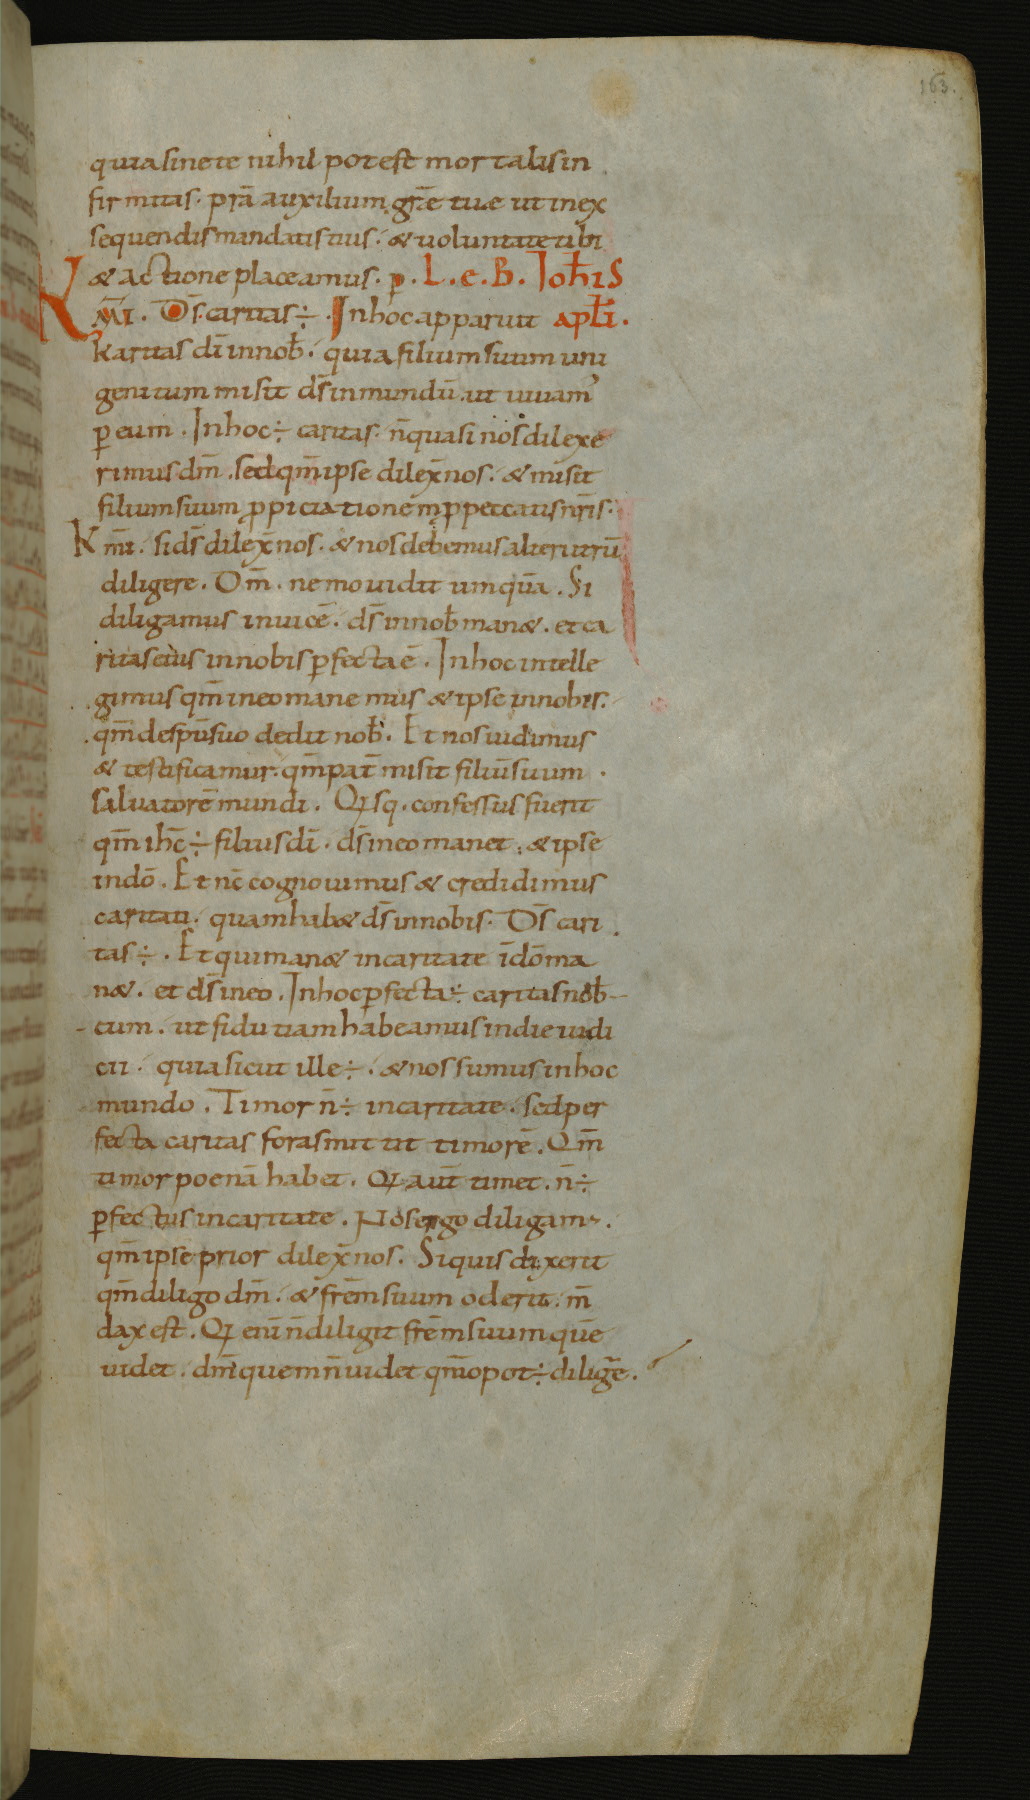 163.
quia sine te nihil potest mortalis in
firmitas. pr̄a auxilium gr̄ę tuę ut in ex
sequendis mandatis tuis. & uoluntate tibi
& actione placeamus. p̄. L. e. B. Ioh̄is
K̄m̄i. D̄s caritas ÷. In hoc apparuit apl̄i.
karitas dī in nob̄. quia filium suum uni
genitum misit d̄s in mundū. ut uiuam᾿
p̱ eum. In hoc ÷ caritas. n̄ quasi nos dilexe
rimus dm̄. sed qm̄ ipse dilex̄ nos. & misit
filium suum p̱pitiationem p̱ peccatis nr̄is.
Km̄i. si d̄s dilex̄ nos. & nos debemus alterutrū
diligere. Dm̄. nemo uidit umquā. Si
diligamus inuicē. d̄s in nob̄ man&. et ca
ritas eius in nobis p̱fecta ē. In hoc intelle
gimus qm̄ in eo manemus & ipse in nobis.
qm̄ de sp̄u suo dedit nob̄. Et nos uidimus
& testificamur. qm̄ pat̄ misit filiū suum
saluatorē mundi. Qisq. confessus fuerit
qm̄ ih̄c ÷ filius dī. d̄s in eo manet. & ipse
in dō. Et nc̄ cognouimus & credidimus
caritati. quam hab& d̄s in nobis. D̄s cari
tas ÷. Et qui man& in caritate ī dō ma
n&. et d̄s in eo. In hoc p̱fecta ÷ caritas nob̄
cum. ut fidutiam habeamus in die iudi
cii. quia sicut ille ÷. & nos sumus in hoc
mundo. Timor n̄ ÷ in caritate. sed per
fecta caritas foras mittit timorē. Qm̄
timor poenā habet. Qi aut̄ timet. n̄ ÷
p̱fectus in caritate. Nos ergo diligam᾿.
qm̄ ipse prior dilex̄ nos. Si quis dixerit
qm̄ diligo dm̄. & frēm suum oderit. m̄
dax est. Qi enī n̄ diligit frēm suum quē
uidet. dm̄ quem n̄ uidet qm̄o pot ÷ diligē.